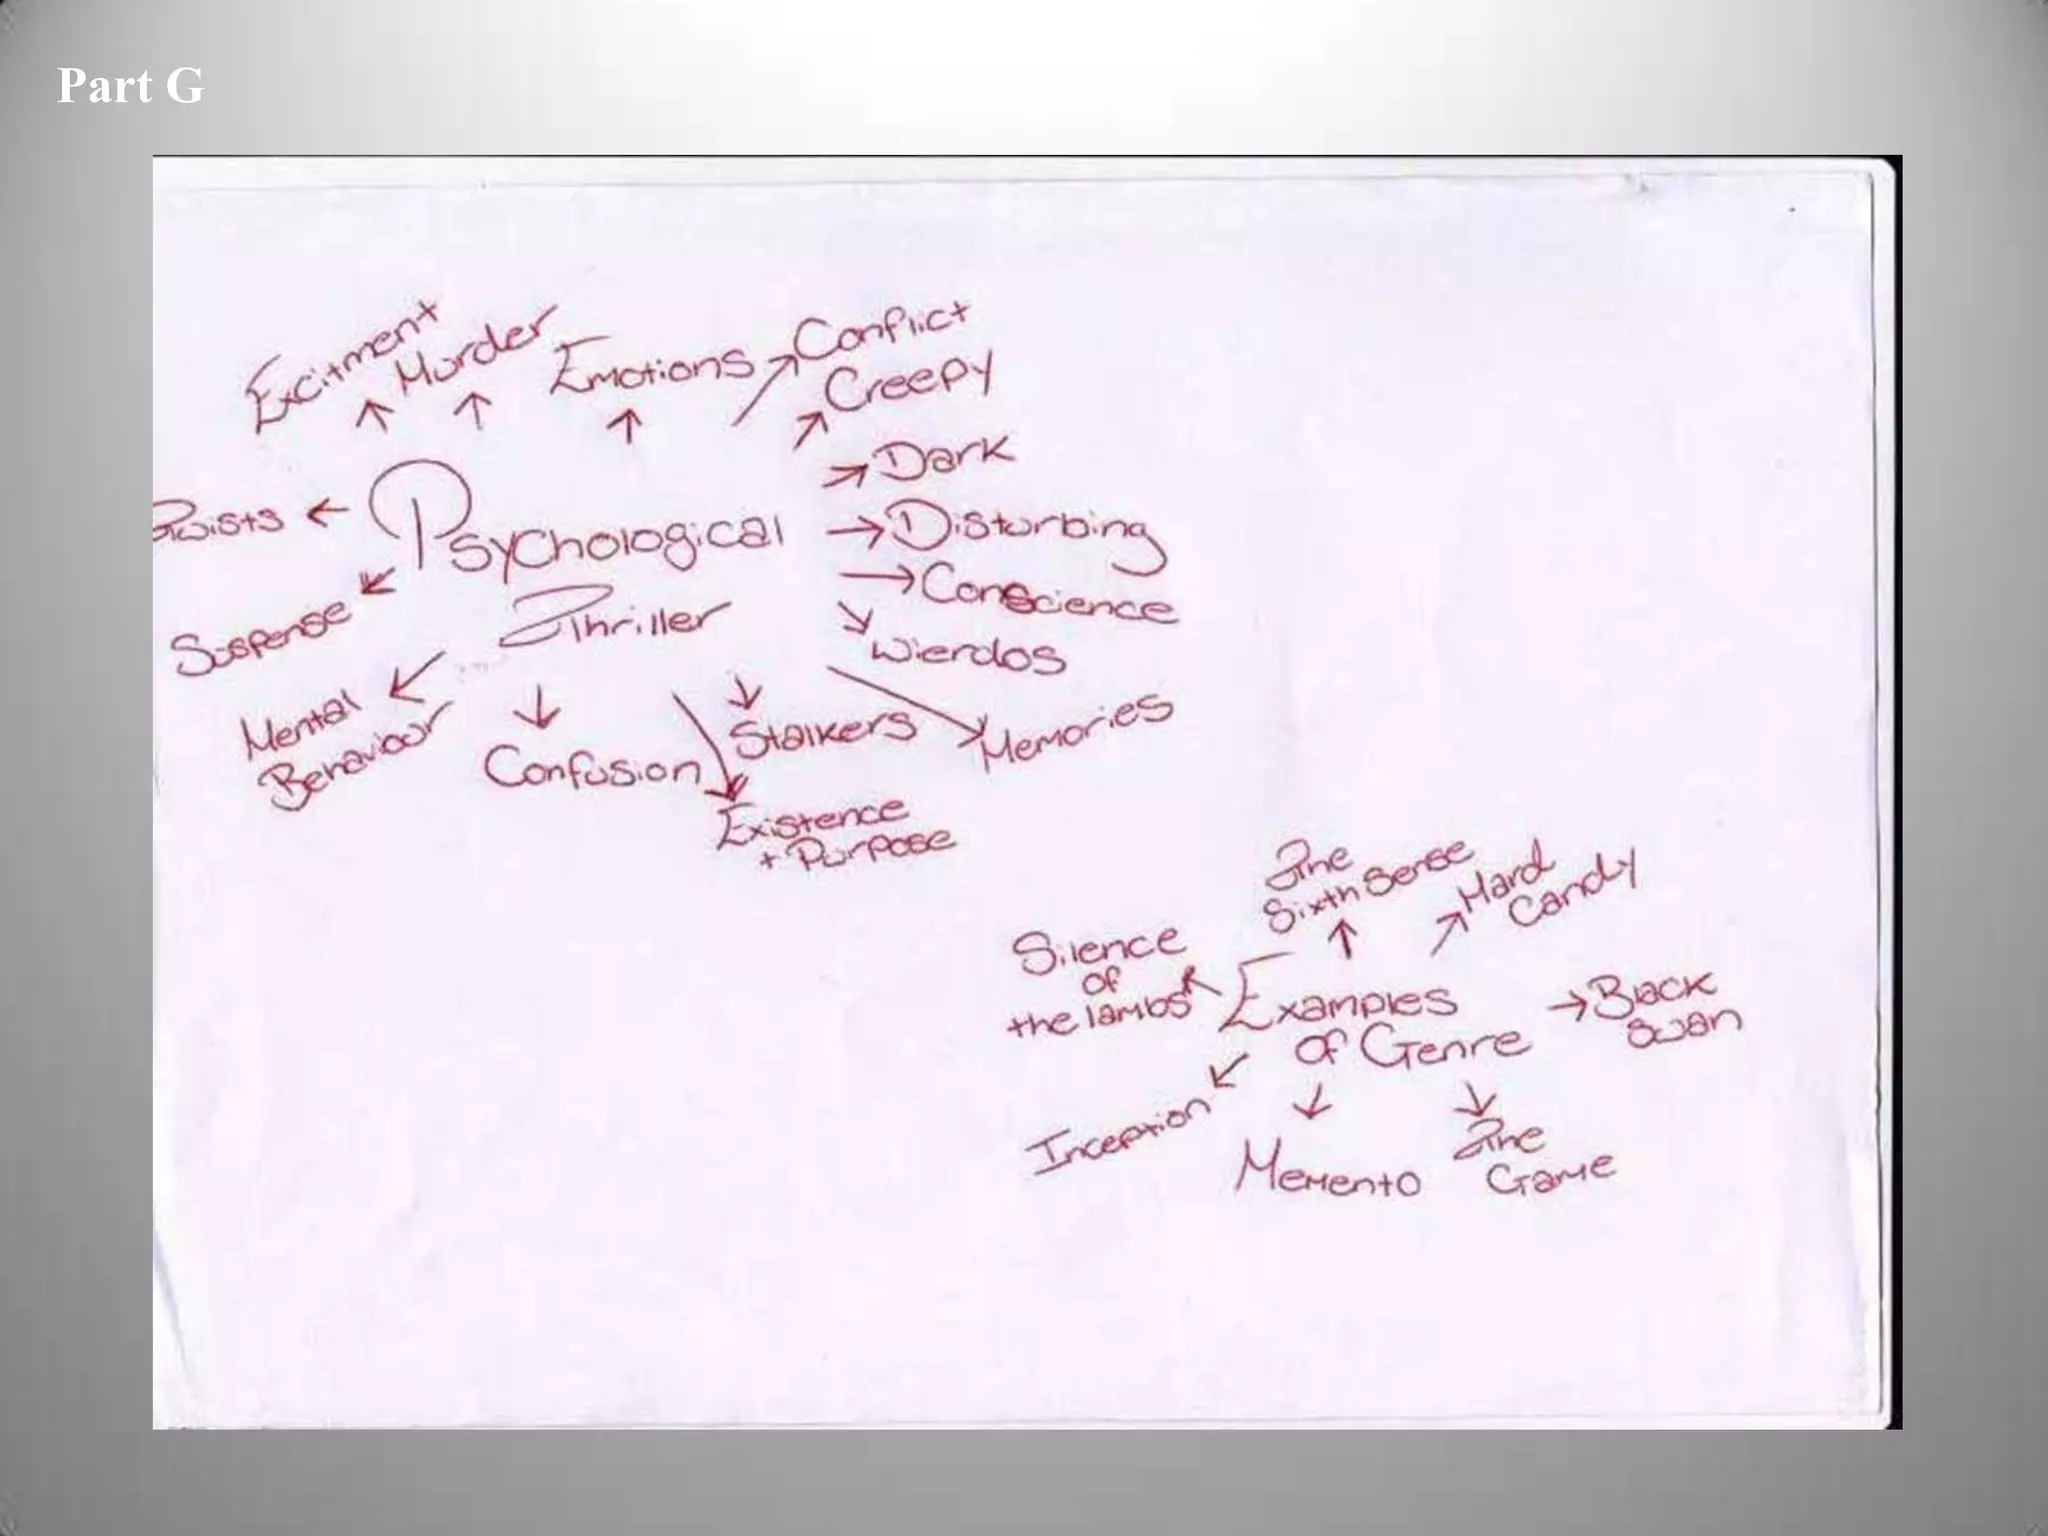 Part G
Excitment
Murder
Emotions
Conflict
Creepy
Dark
Disturbing
Conscience
Wierdos
Memories
Stalkers
Existence
+ Purpose
Confusion
Mental
Behaviour
Suspense
Twists
Psychological
Thriller
Examples
of Genre
The
Sixth Sense
Hard
Candy
Black
Swan
The
Game
Memento
Inception
Silence
of
the lambs